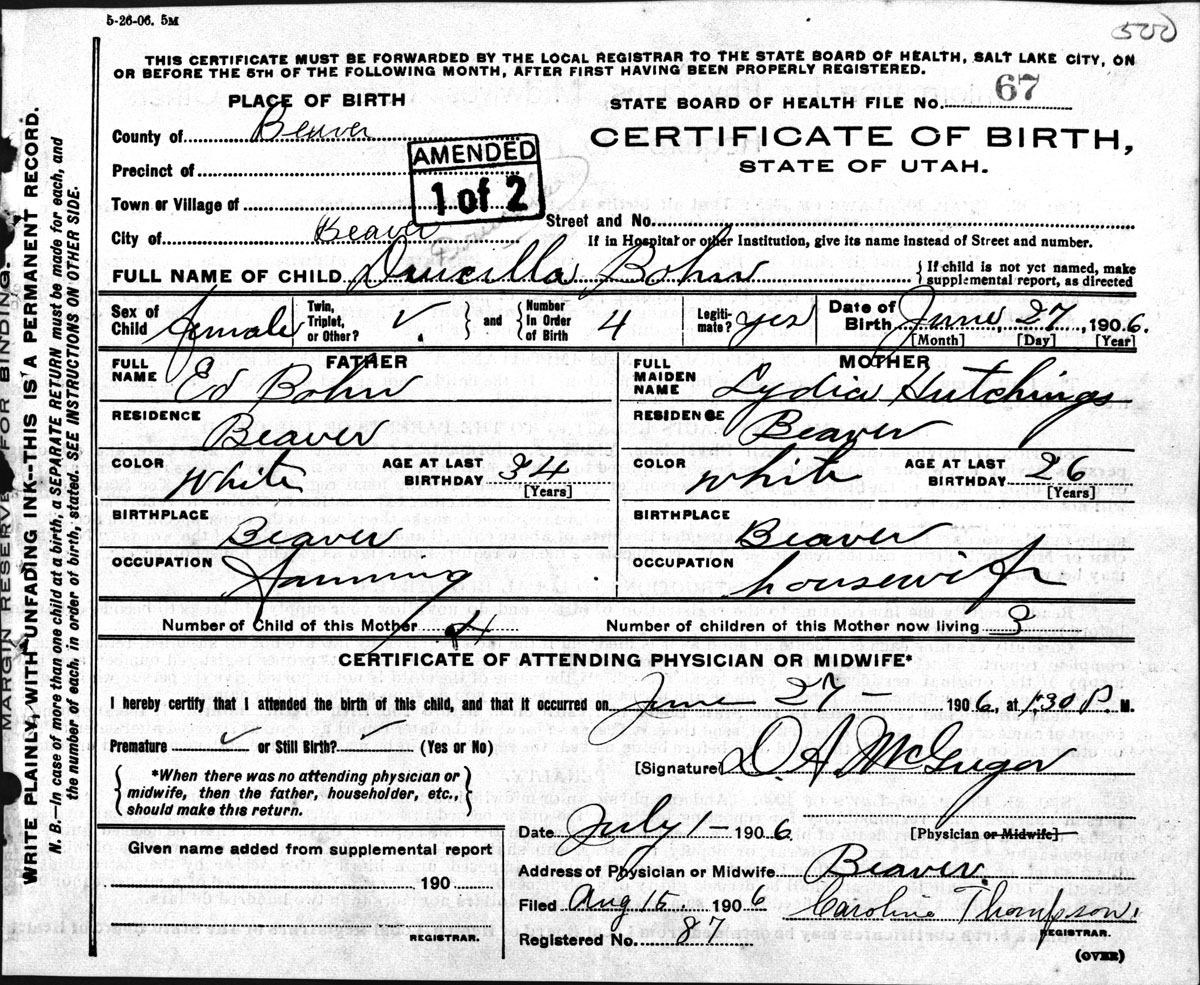 5-26-06. 5M
500
THIS CERTIFICATE MUST BE FORWARDED BY THE LOCAL REGISTRAR TO THE STATE BOARD OF HEALTH, SALT LAKE CITY, ON
OR BEFORE THE 5TH OF THE FOLLOWING MONTH, AFTER FIRST HAVING BEEN PROPERLY REGISTERED.
PLACE OF BIRTH
STATE BOARD OF HEALTH FILE No. 67
County of Beaver
CERTIFICATE OF BIRTH,
STATE OF UTAH.
AMENDED
1 of 2
Precinct of
Town or Village of
Street and No.
City of Beaver
If in Hospital or other Institution, give its name instead of Street and number.
FULL NAME OF CHILD Drucilla Bohn
{ If child is not yet named, make
supplemental report, as directed
Sex of Child female
Twin, Triplet, or Other? ✓
and { Number In Order of Birth 4
Legiti-mate? yes
Date of Birth June, 27, 1906.
[Month] [Day] [Year]
FATHER
FULL NAME Ed Bohn
MOTHER
FULL MAIDEN NAME Lydia Hutchings
RESIDENCE Beaver
RESIDENCE Beaver
COLOR White
AGE AT LAST BIRTHDAY 34
[Years]
COLOR White
AGE AT LAST BIRTHDAY 26
[Years]
BIRTHPLACE Beaver
BIRTHPLACE Beaver
OCCUPATION Farming
OCCUPATION housewife
Number of Child of this Mother 4
Number of children of this Mother now living 3
CERTIFICATE OF ATTENDING PHYSICIAN OR MIDWIFE*
I hereby certify that I attended the birth of this child, and that it occurred on June 27 - 1906, at 1:30 P. M.
Premature ✓ or Still Birth? (Yes or No)
[Signature] D. A. McGregor
{ *When there was no attending physician or
midwife, then the father, householder, etc.,
should make this return. }
Date July 1 - 1906
[Physician or Midwife]
Given name added from supplemental report
Address of Physician or Midwife Beaver.
190
Filed Aug 16, 1906
Caroline Thompson,
REGISTRAR.
REGISTRAR.
Registered No. 87
(OVER)
MARGIN RESERVED FOR BINDING.
WRITE PLAINLY, WITH UNFADING INK—THIS IS A PERMANENT RECORD.
N. B.—In case of more than one child at a birth, a SEPARATE RETURN must be made for each, and
the number of each, in order of birth, stated. SEE INSTRUCTIONS ON OTHER SIDE.